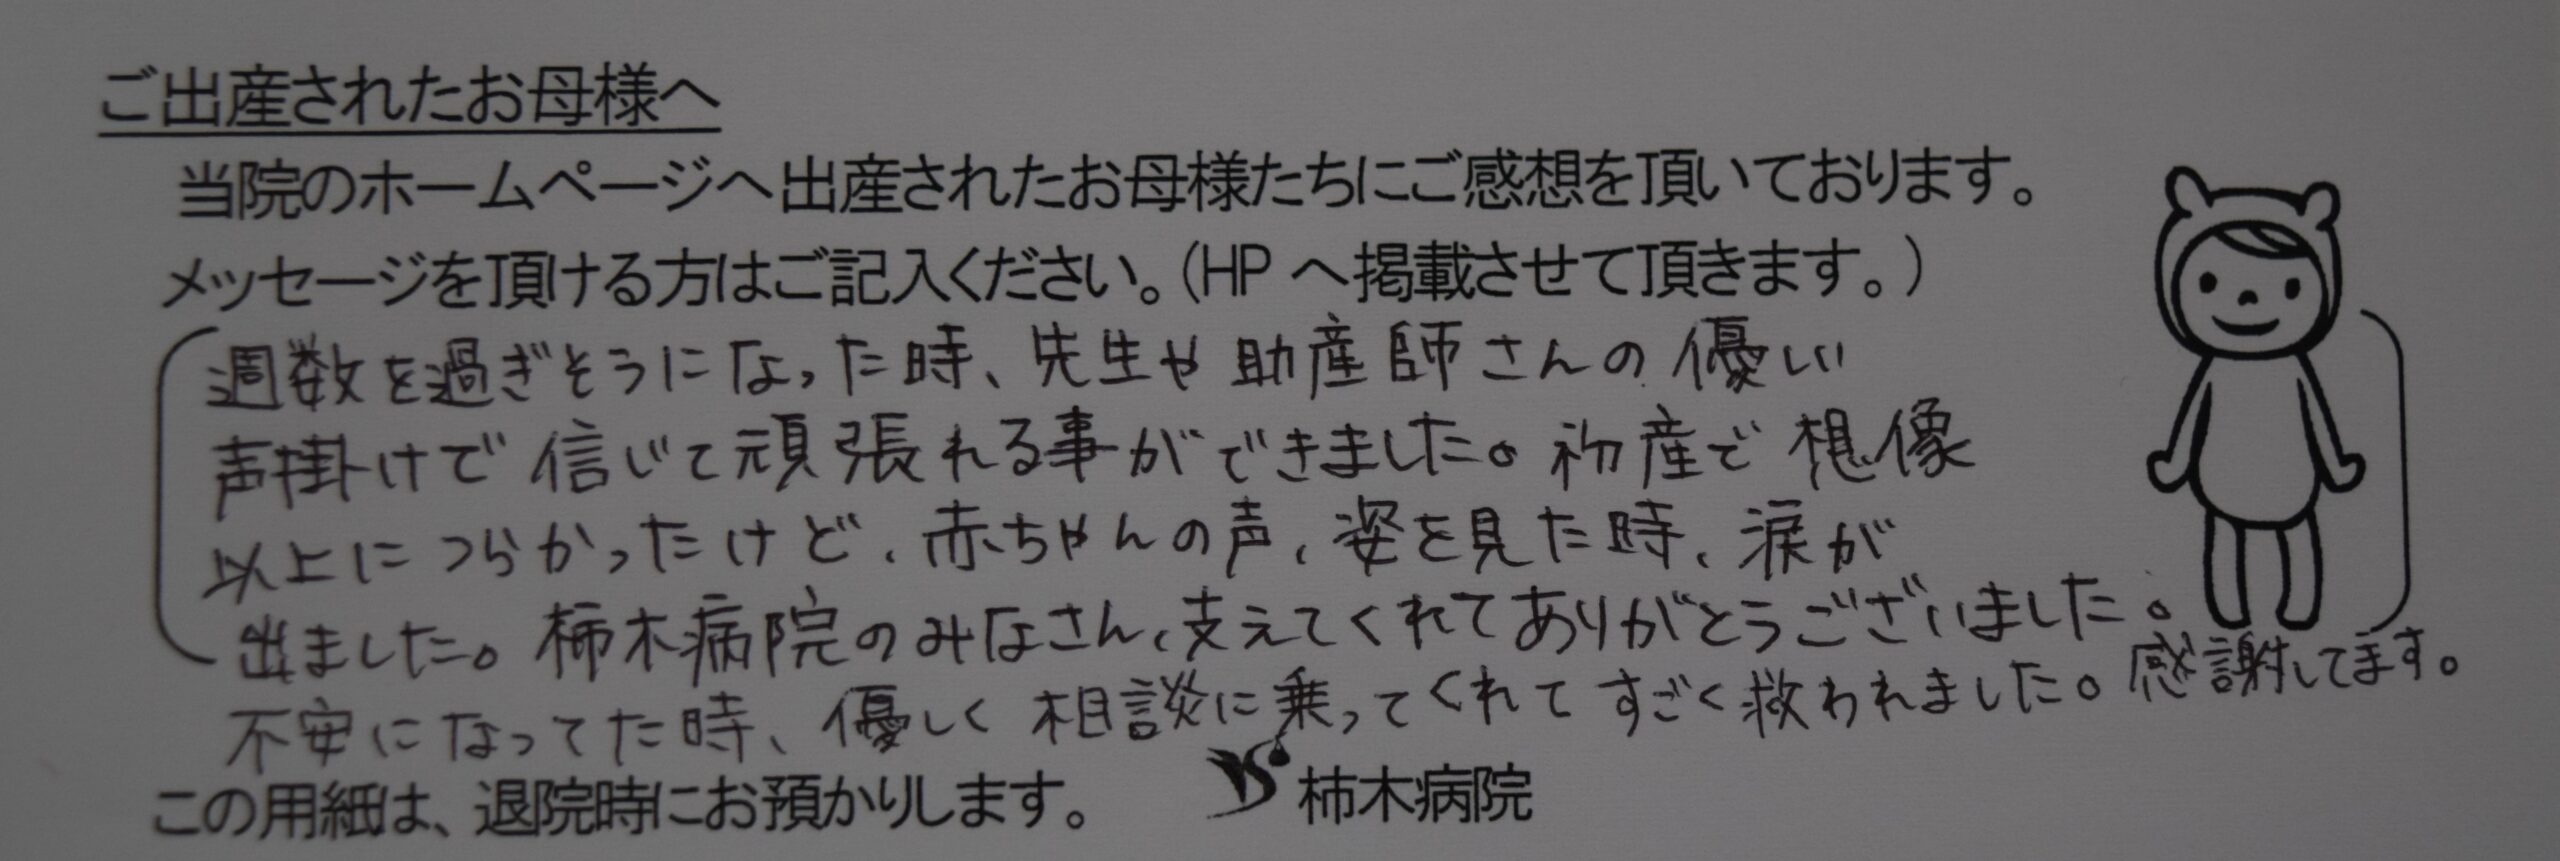 ご出産されたお母様へ
当院のホームページへ出産されたお母様たちにご感想を頂いております。
メッセージを頂ける方はご記入ください。(HP へ掲載させて頂きます。)
週数を過ぎそうになった時、先生や助産師さんの優しい
声掛けで信じて頑張れる事ができました。初産で想像
以上につらかったけど、赤ちゃんの声、姿を見た時、涙が
出ました。柿木病院のみなさん、支えてくれてありがとうございました。
不安になってた時、優しく相談に乗ってくれてすごく救われました。感謝してます。
この用紙は、退院時にお預かりします。 柿木病院